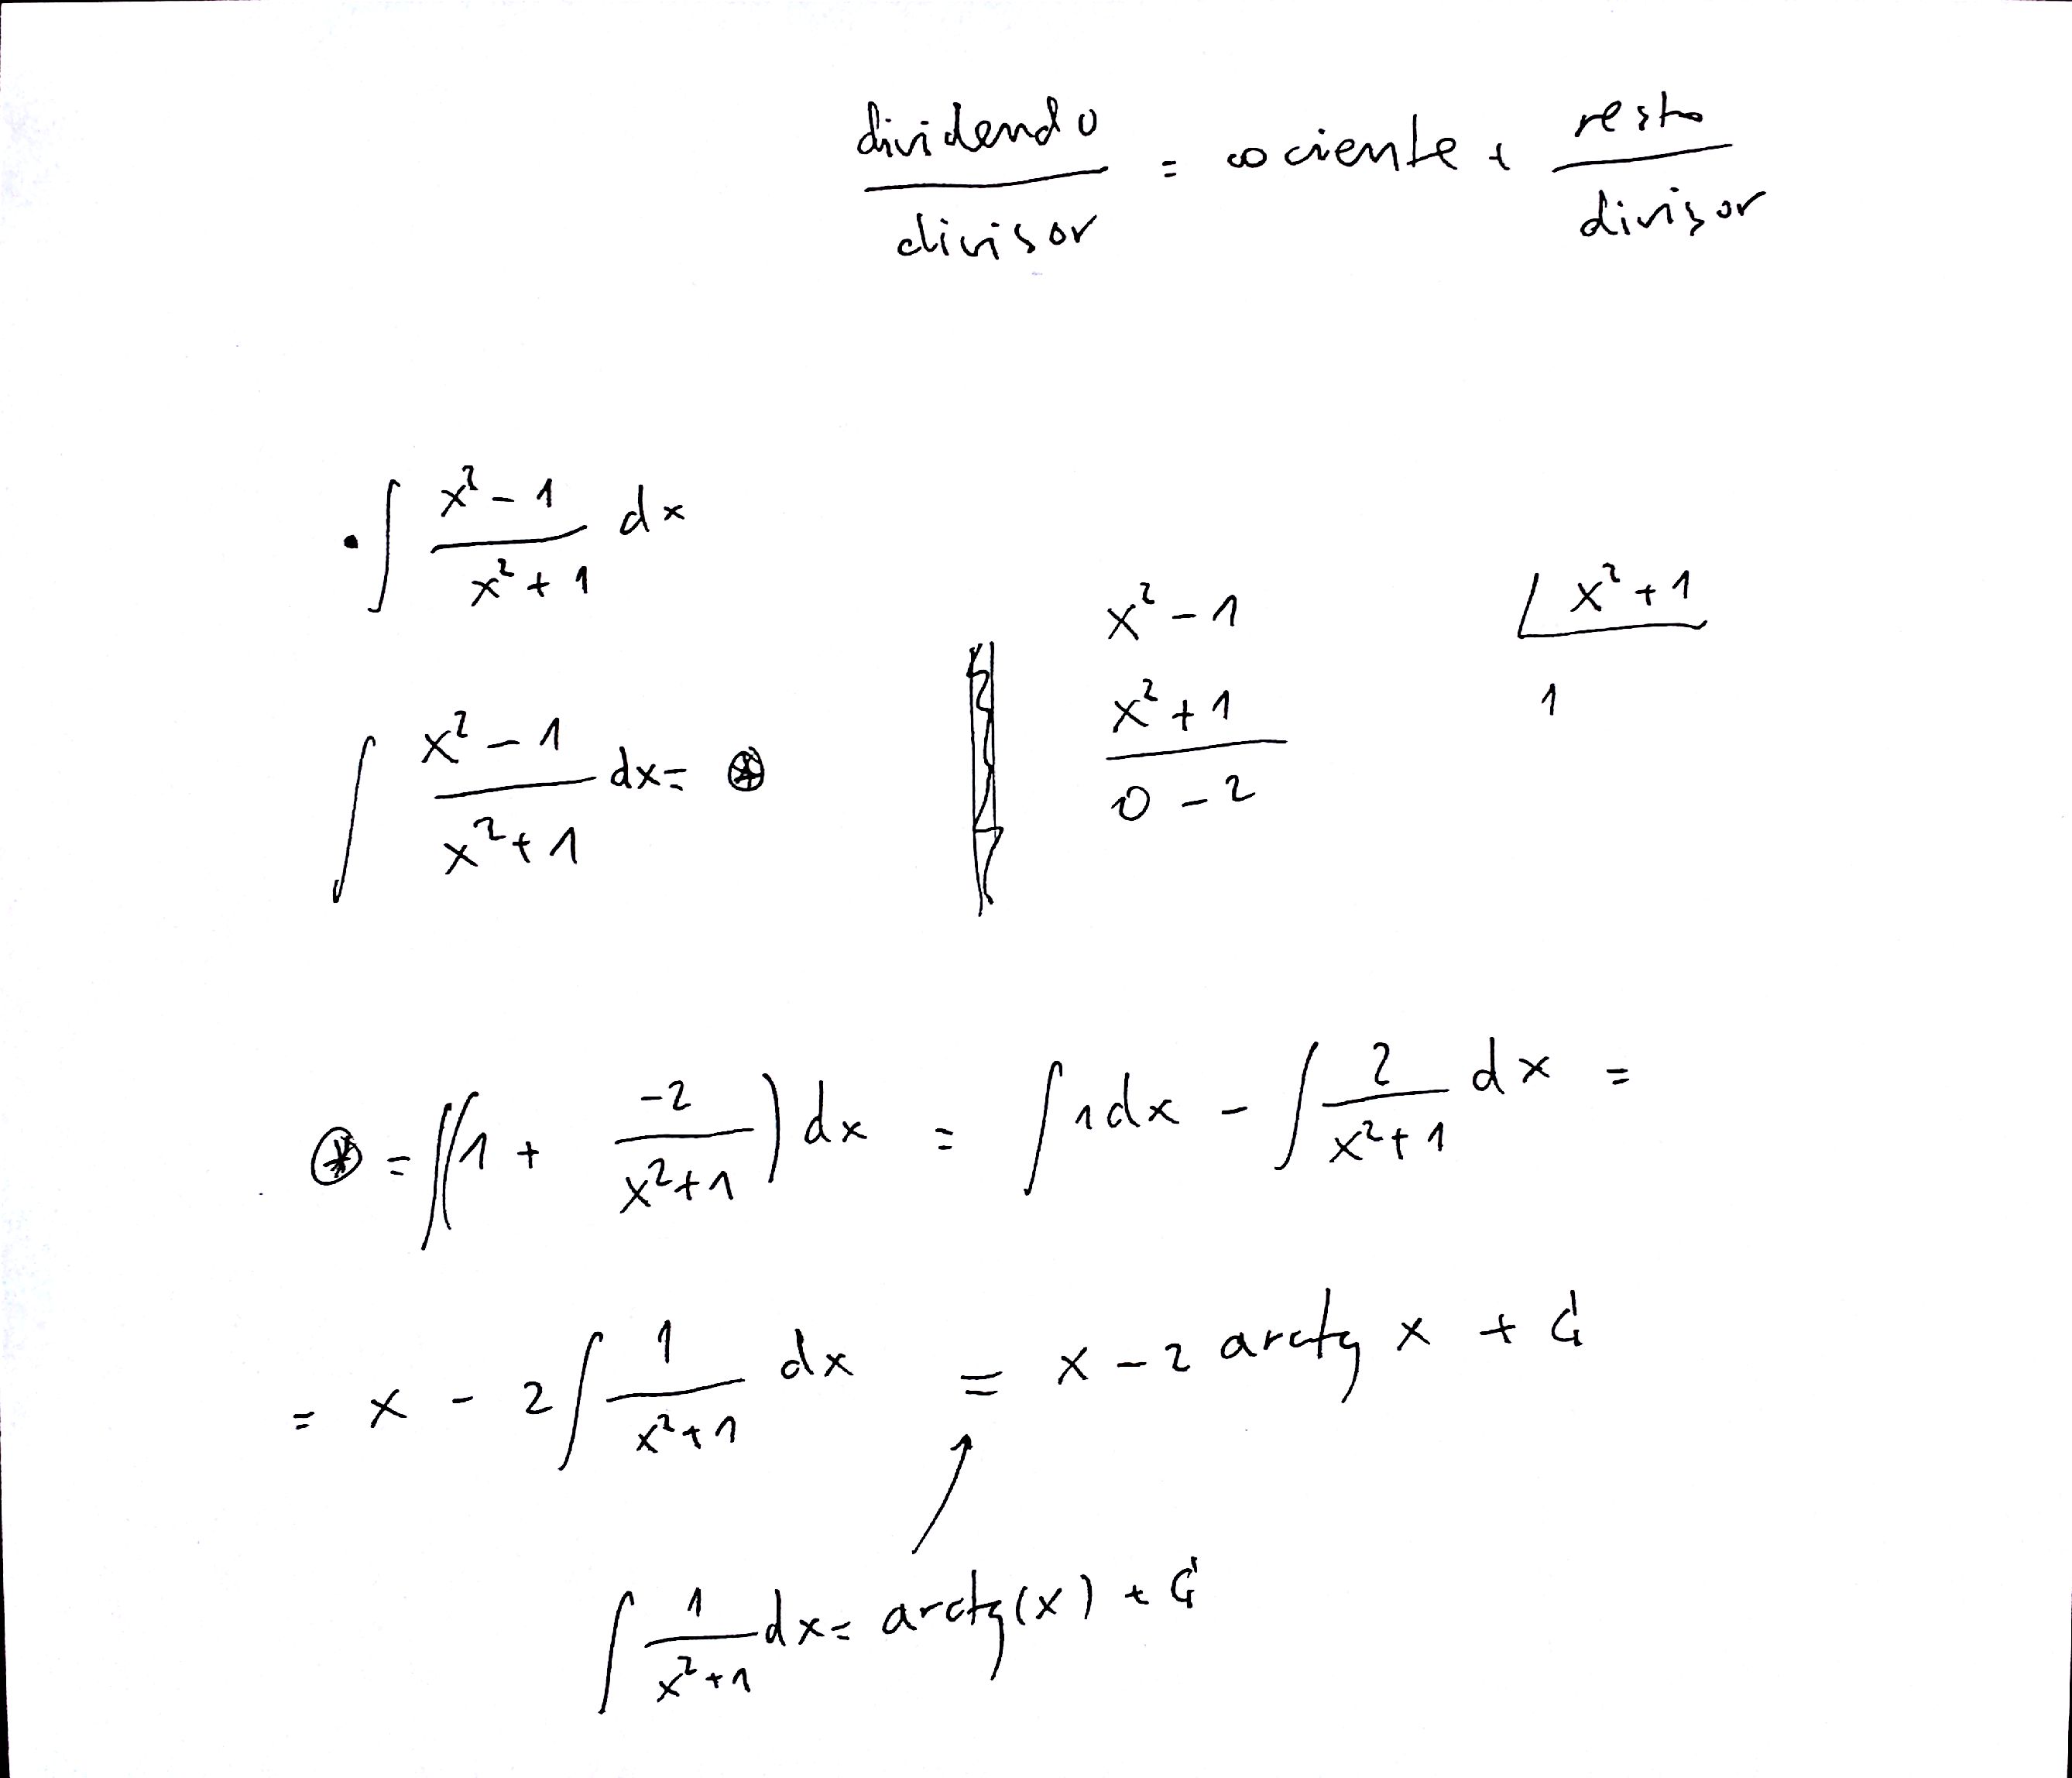 dividendo / divisor = cociente + resto / divisor
• ∫ (x² - 1) / (x² + 1) dx
x² - 1 | x² + 1
x² + 1 1
0 - 2
∫ (x² - 1) / (x² + 1) dx = ⊛
⊛ = ∫ (1 + -2 / (x² + 1)) dx = ∫ 1 dx - ∫ 2 / (x² + 1) dx =
= x - 2 ∫ 1 / (x² + 1) dx = x - 2 arctg x + C
↑
∫ 1 / (x² + 1) dx = arctg(x) + C